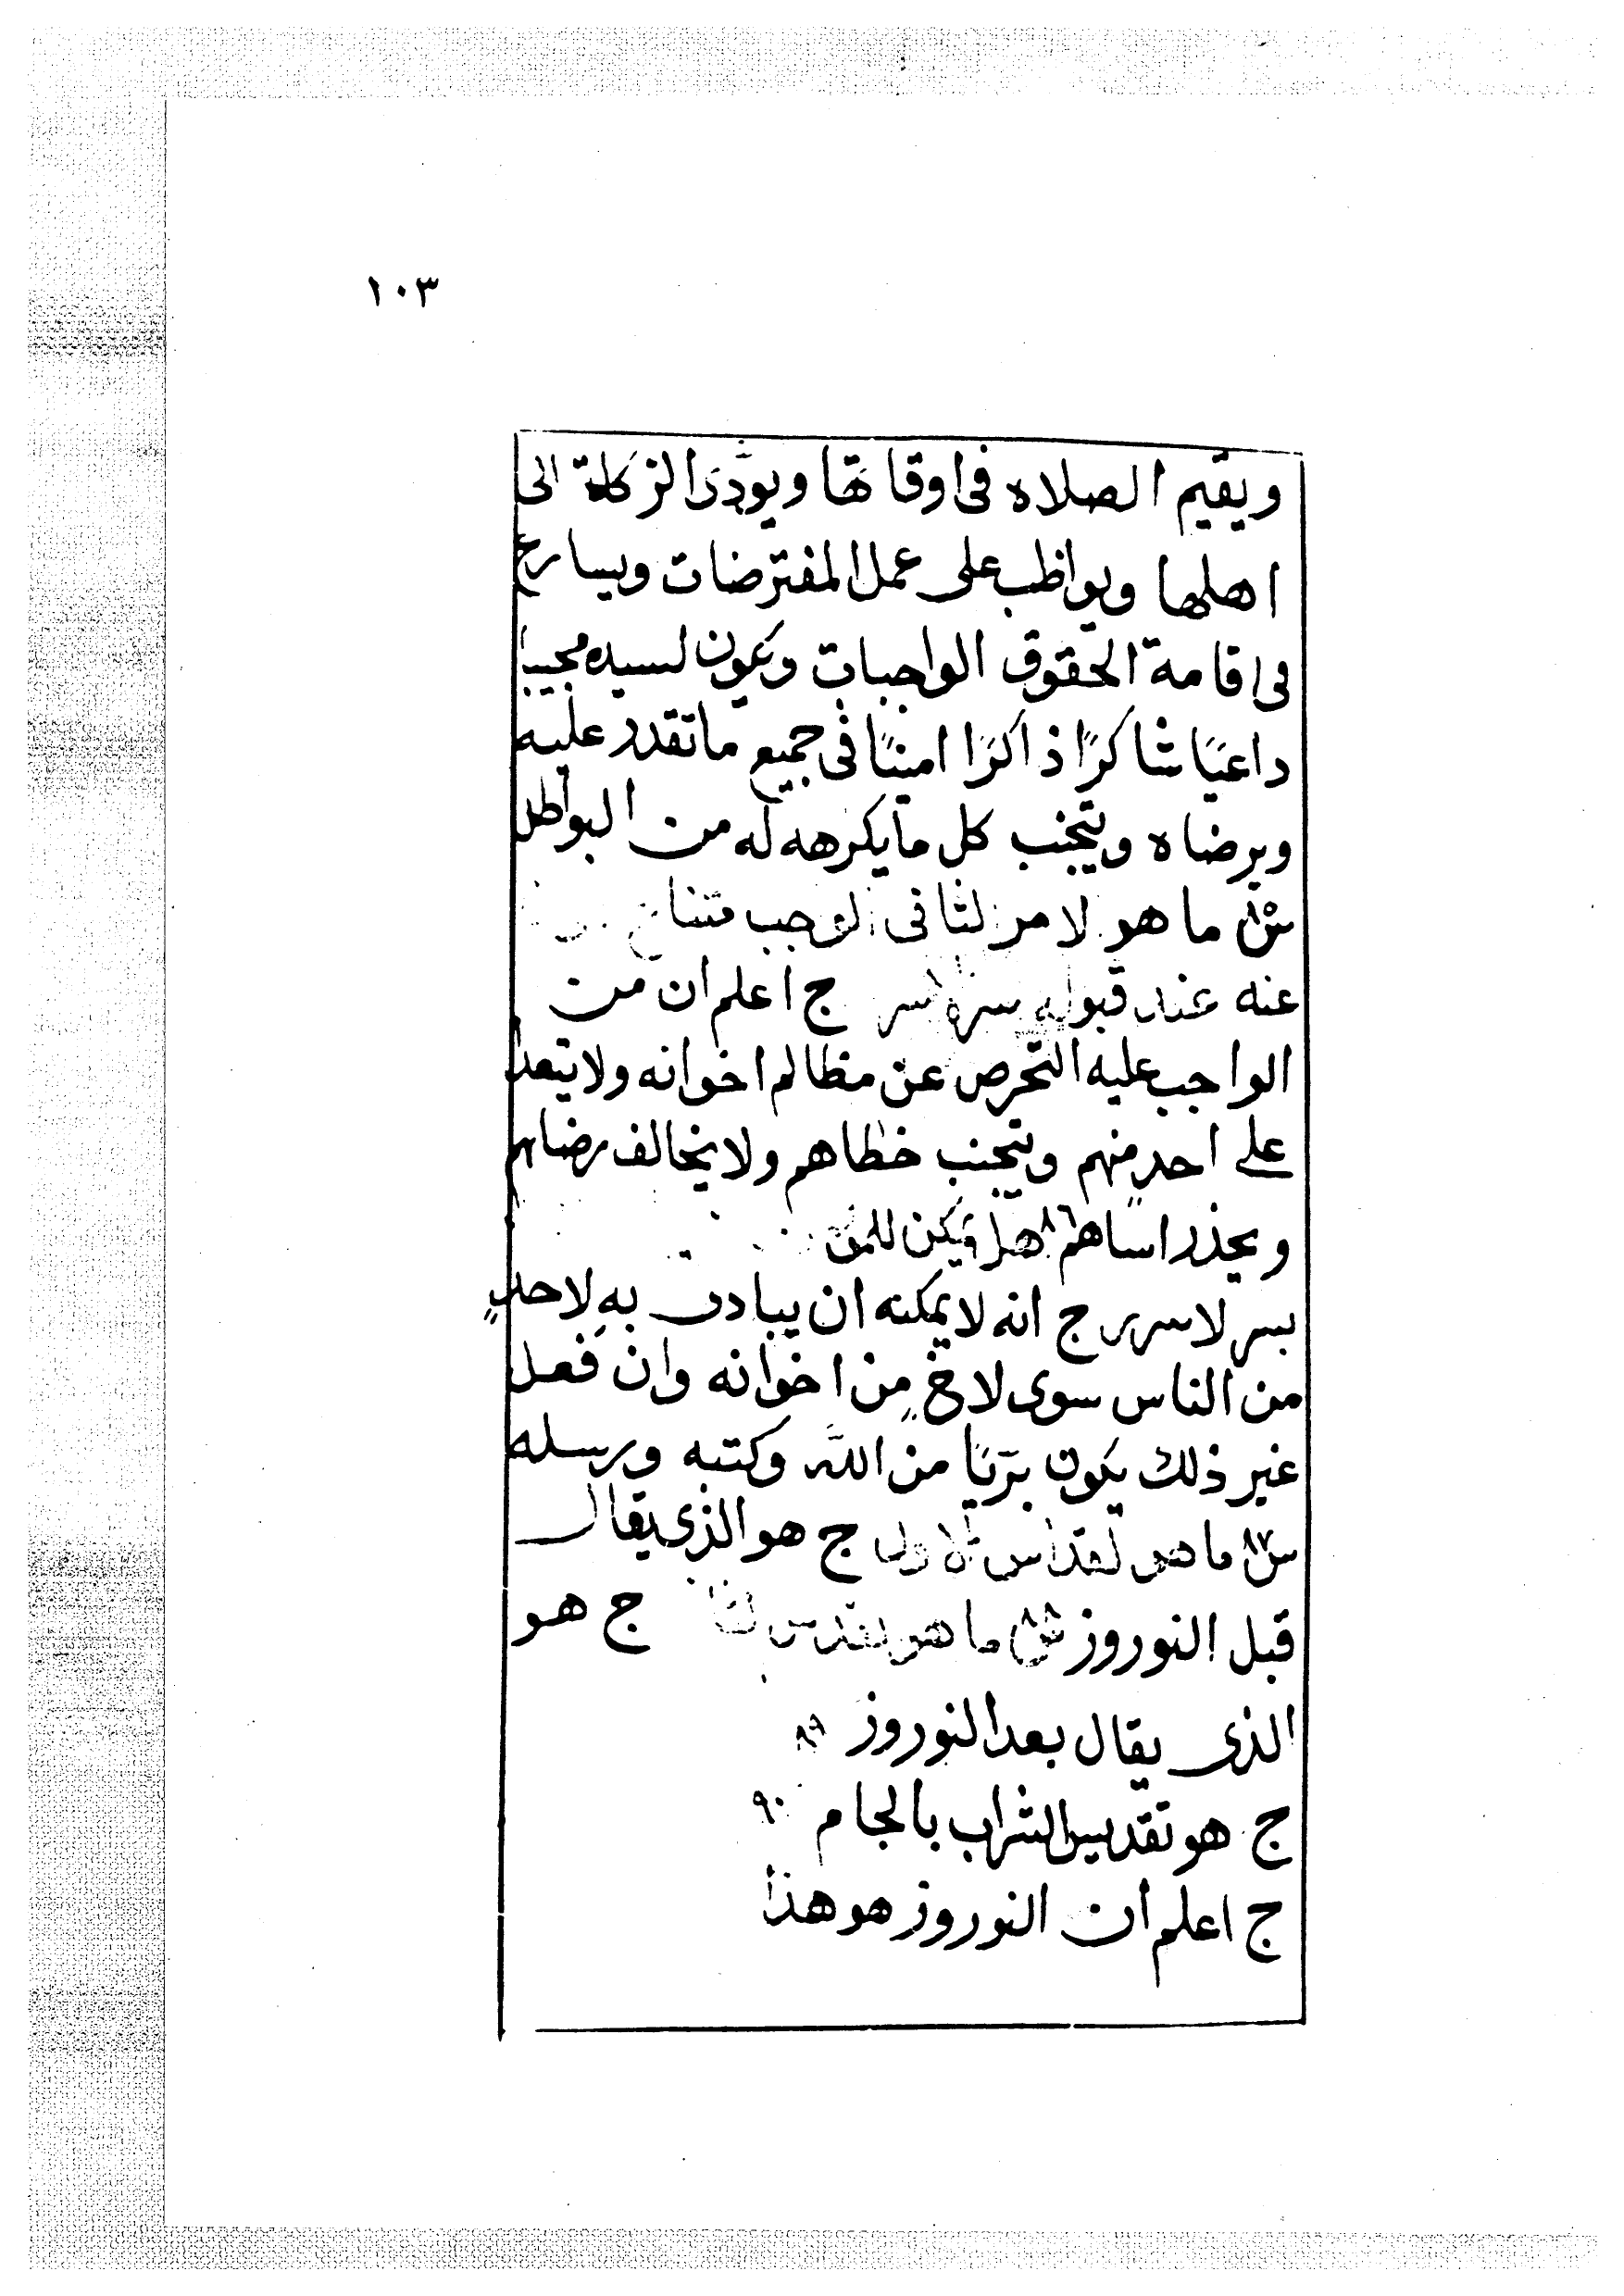 ١٠٣
ويقيم الصلاه فى اوقاتها ويؤدى الزكاة الى
اهلها ويواظب على عمل المفترضات ويسارع
فى اقامة الحقوق الواجبات ويكون لسيده مجيبا
داعيًا شاكرًا ذاكرًا امينًا فى جميع ما تقدر عليه
ويرضاه ويتجنب كل ما يكرهه له من البواطل
س ٨٥ ما هو لامر لثانى لوجب
عنه عند قبوله سر ج اعلم ان من
الواجب عليه التحرص عن مظالم اخوانه ولا يتعدا
على احدٍ منهم ويتجنب خطاهم ولا يخالف رضاهم
ويحذر اساهم ٨٦ هل يمكن للمؤ
بسر لاسرر ج انه لا يمكنه ان يبادى به لاحدٍ
من الناس سوى لاخٍ من اخوانه وان فعل
غير ذلك يكون بريًا من الله وكتبه ورسله
س ٨٧ ما هو لقداس لاول ج هو الذى يقال
قبل النوروز س ٨٨ ما هو ج هو
الذى يقال بعد النوروز ٨٩
ج هو تقديس الشراب بالجام ٩٠
ج اعلم ان النوروز هو هذا